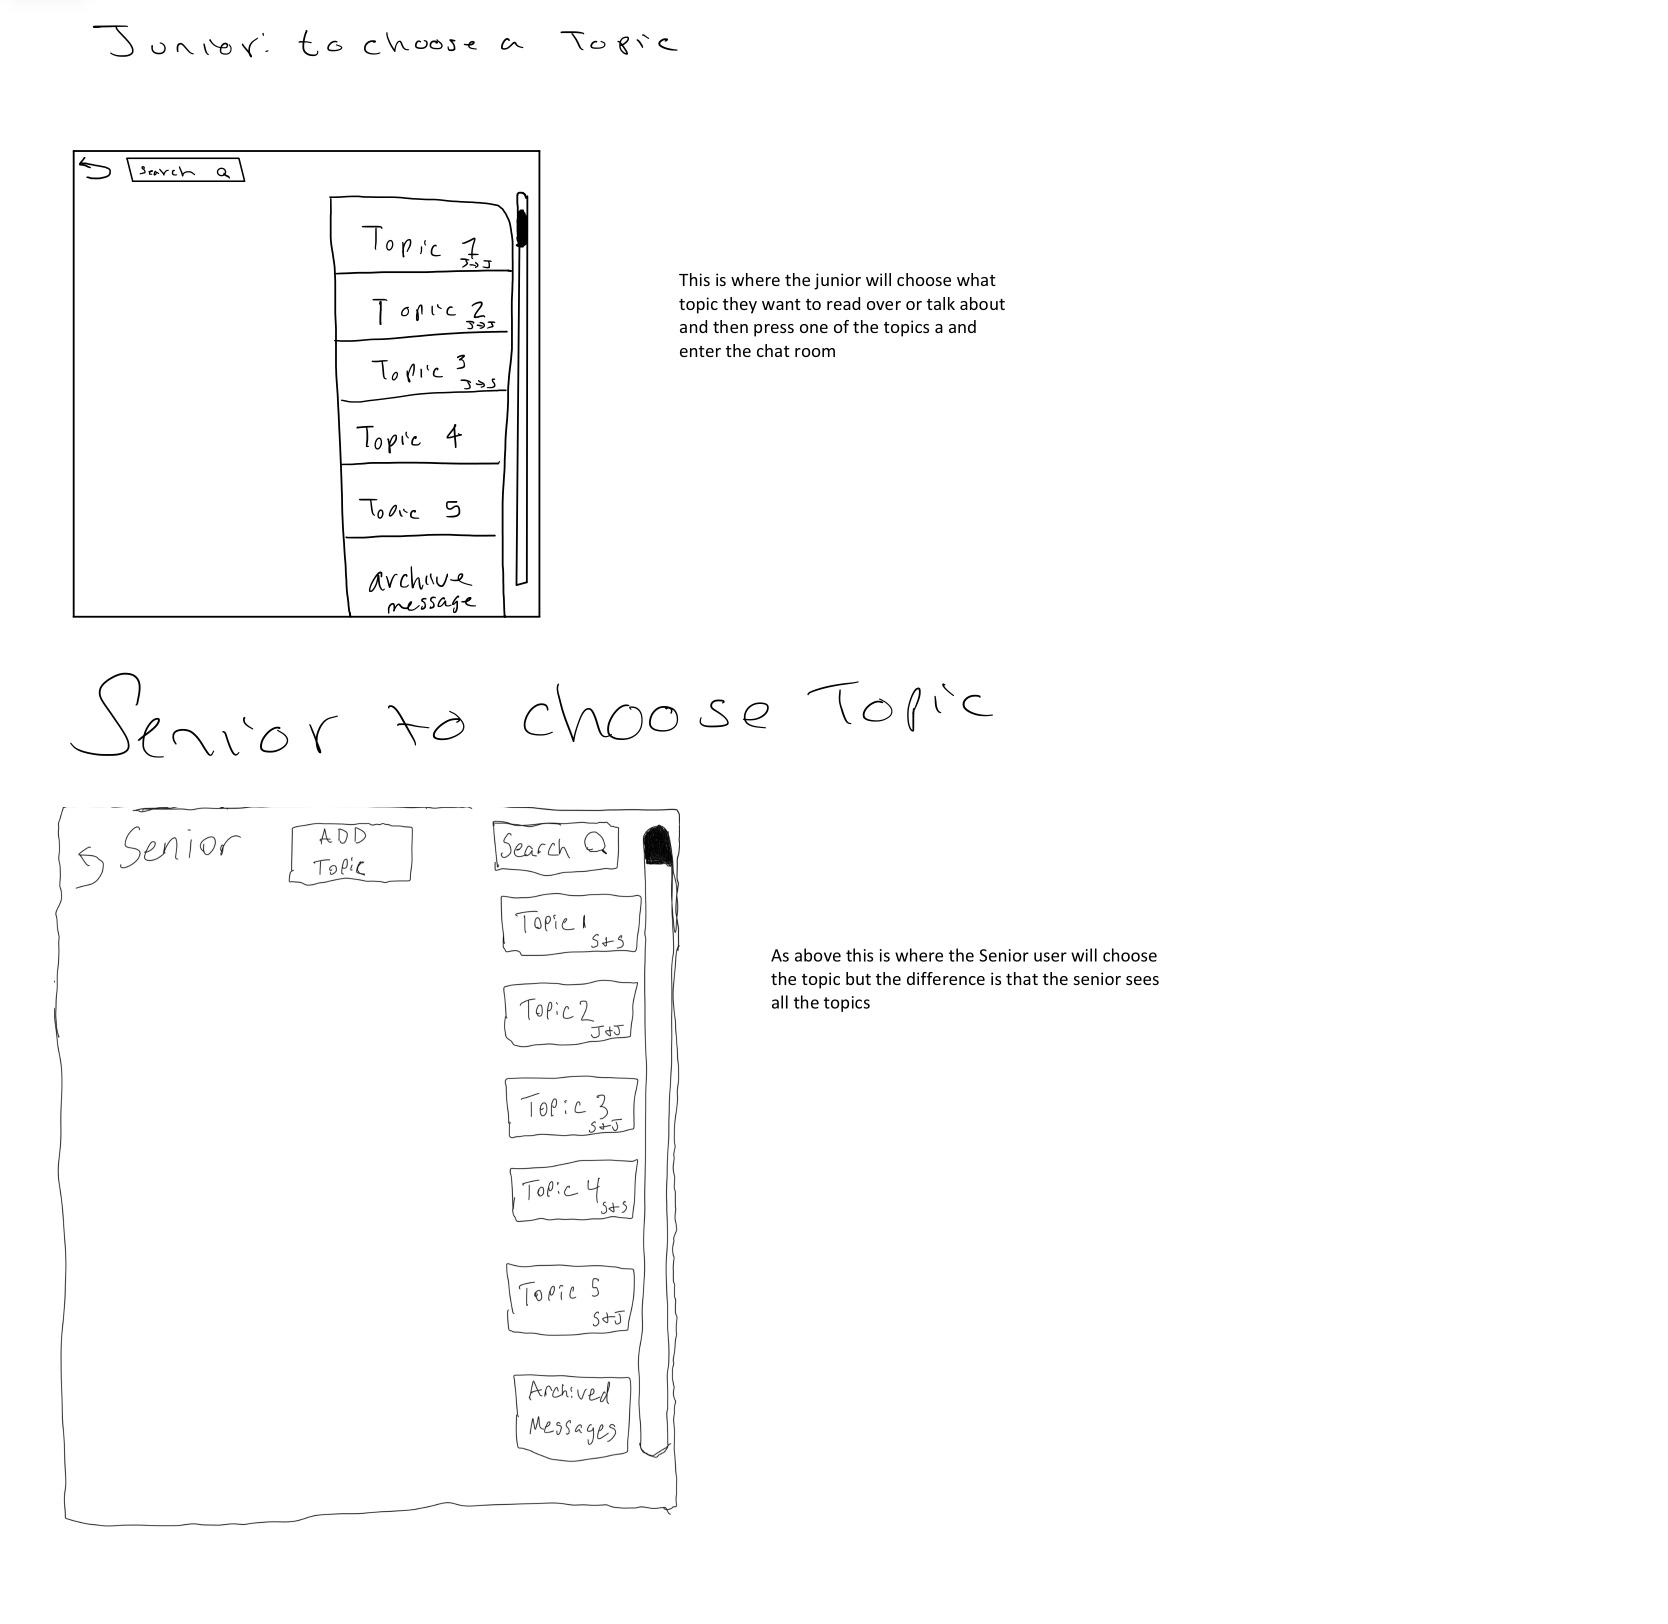 Junior: to choose a Topic
Search
Topic 1
J→J
Topic 2
J→J
Topic 3
J→S
Topic 4
Topic 5
archive
message
This is where the junior will choose what
topic they want to read over or talk about
and then press one of the topics a and
enter the chat room
Senior to choose Topic
Senior
ADD
Topic
Search
Topic 1
S+S
Topic 2
J+J
Topic 3
S+J
Topic 4
S+S
Topic 5
S+J
Archived
Messages
As above this is where the Senior user will choose
the topic but the difference is that the senior sees
all the topics